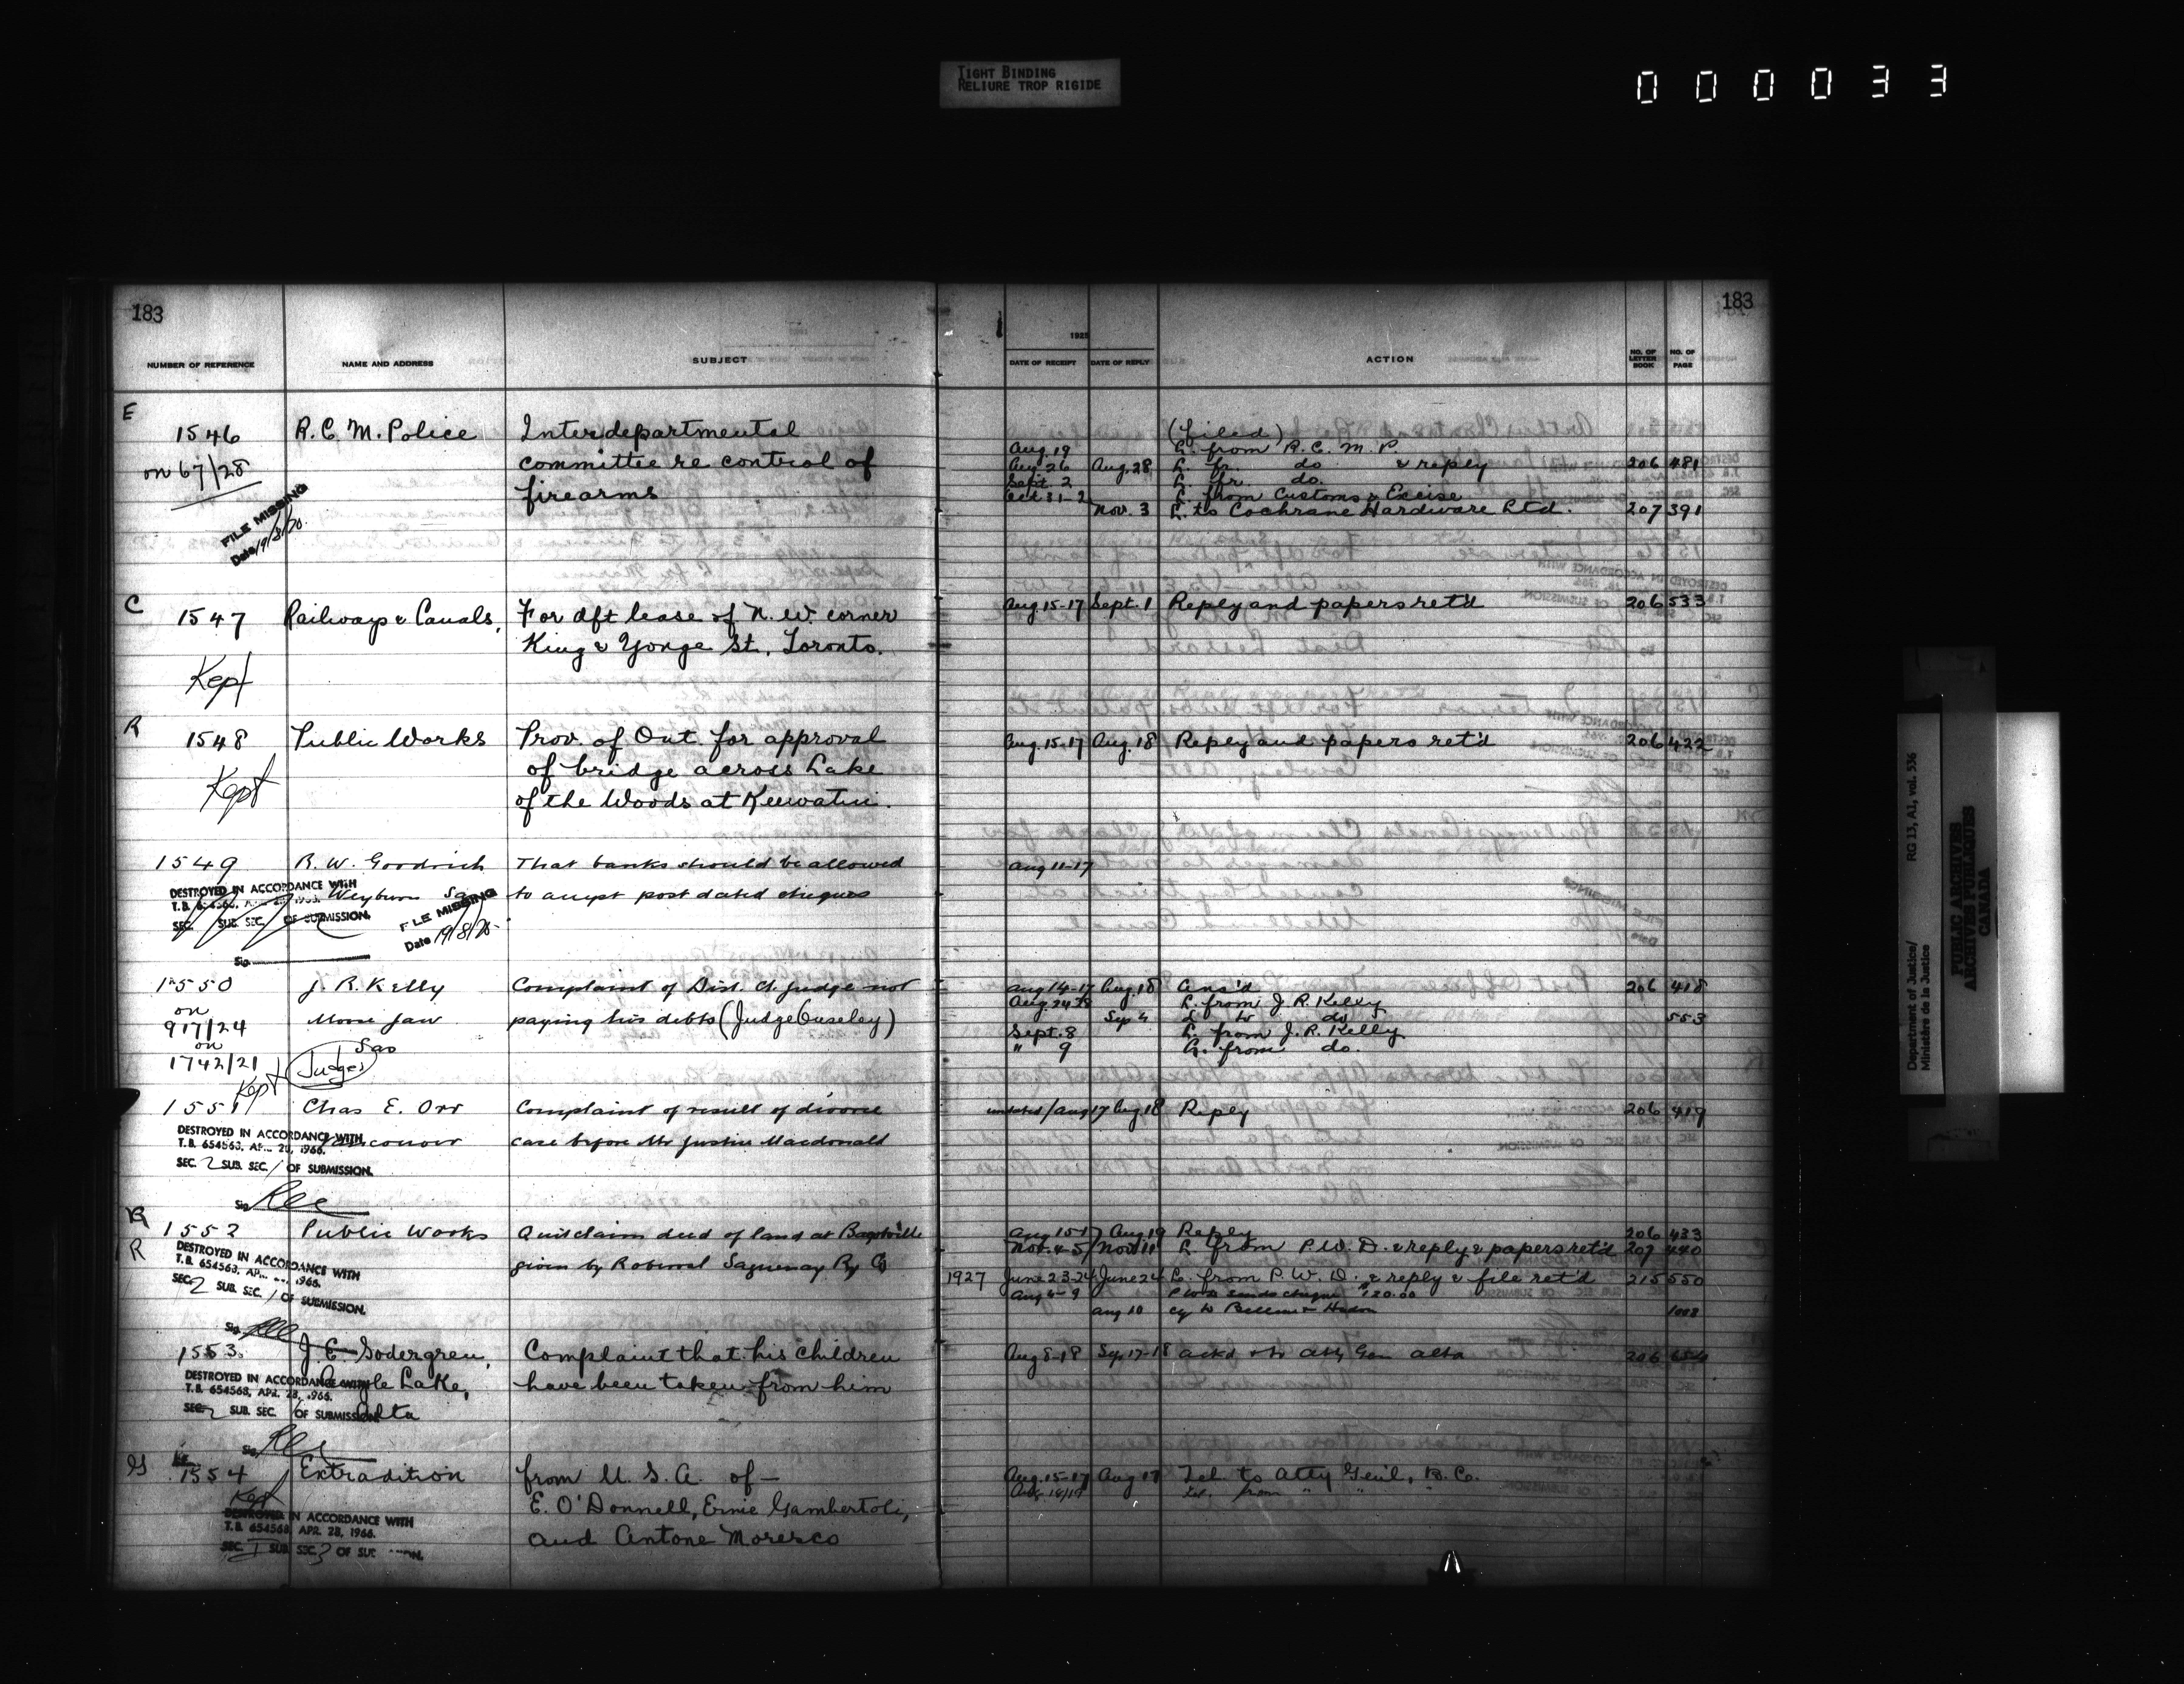 TIGHT BINDING
RELIURE TROP RIGIDE
000033
183
NUMBER OF REFERENCE NAME AND ADDRESS SUBJECT
E
1546 R.C.M. Police Interdepartmental
on 67/28 committee re control of
firearms
FILE MISSING
Date 19/8/70.
C
1547 Railways & Canals, For dft lease of N.W. corner
King & Yonge St. Toronto.
Kept
R
1548 Public Works Prov. of Ont. for approval
of bridge across Lake
Kept
of the Woods at Keewatin.
1549 R. W. Goodrich That banks should be allowed
Weyburn Sas to accept post dated cheques
DESTROYED IN ACCORDANCE WITH
T.B. 654563, 1966.
SEC. SUB. SEC. OF SUBMISSION.
Sig
FILE MISSING
Date 19/8/75
1550 J. R. Kelly Complaint of Dist. Ct. Judge not
on
917/24 Moose Jaw paying his debts (Judge Ouseley)
on Sas
1742/21 Judges
Kept
1551 Chas E. Orr Complaint of result of divorce
Vancouver case before Mr Justice Macdonald
DESTROYED IN ACCORDANCE WITH
T.B. 654563, APR. 28, 1966.
SEC. 2 SUB. SEC. 1 OF SUBMISSION.
Sig
R
1552 Public Works Quitclaim deed of land at Bagotville
R given by Roberval Saguenay Ry Co
DESTROYED IN ACCORDANCE WITH
T.B. 654563, AP 1966.
SEC. 2 SUB. SEC. 1 OF SUBMISSION.
Sig
1553. J. E. Sodergren, Complaint that his children
Lake, have been taken from him
Alta
DESTROYED IN ACCORDANCE WITH
T.B. 654568, APR. 28, 1966.
SEC. 2 SUB. SEC. 1 OF SUBMISSION
Sig
1554 Extradition from U.S.A. of —
Kept E. O'Donnell, Ernie Gambertoli,
and Antone Moresco
DESTROYED IN ACCORDANCE WITH
T.B. 654568, APR. 28, 1966.
SEC. I SUB. SEC. 3 OF
183
1925
DATE OF RECEIPT DATE OF REPLY ACTION NO. OF LETTER BOOK NO. OF PAGE
(filed)
Aug. 19 L. from R.C.M.P.
Aug. 26 Aug. 28 L. fr. do & reply 206 481
Sept. 2 L. fr. do.
Oct 31-2 L. from Customs & Excise
Nov. 3 L. to Cochrane Hardware Ltd. 207 391
Aug. 15-17 Sept. 1 Reply and papers ret'd 206 533
Aug. 15-17 Aug. 18 Reply and papers ret'd 206 422
Aug 11-17
Aug 14-17 Aug. 18 Ans'd 206 418
Aug. 24 L. from J. R. Kelly
Sep 4 L to do 553
Sept. 8 L. from J. R. Kelly
" 9 L. from do.
undated/Aug 17 Aug 18 Reply 206 419
Aug 15-17 Aug. 19 Reply 206 433
Nov. 4-5 Nov. 11 L. from P.W.D. & reply & papers ret'd 207 440
1927 June 23-24 June 24 L. from P.W.D. & reply & file ret'd 215 550
Aug 6-9 PWD sends cheque $20.00
Aug 10 1008
Aug 8-18 Sep. 17-18 ackd & to Atty Gen Alta 206 654
Aug. 15-17 Aug 17 Tel. to Atty Gen'l, B.C.
Aug. 18/19 tel. from " " "
Department of Justice/
Ministère de la Justice
RG 13, A1, vol. 536
PUBLIC ARCHIVES
ARCHIVES PUBLIQUES
CANADA